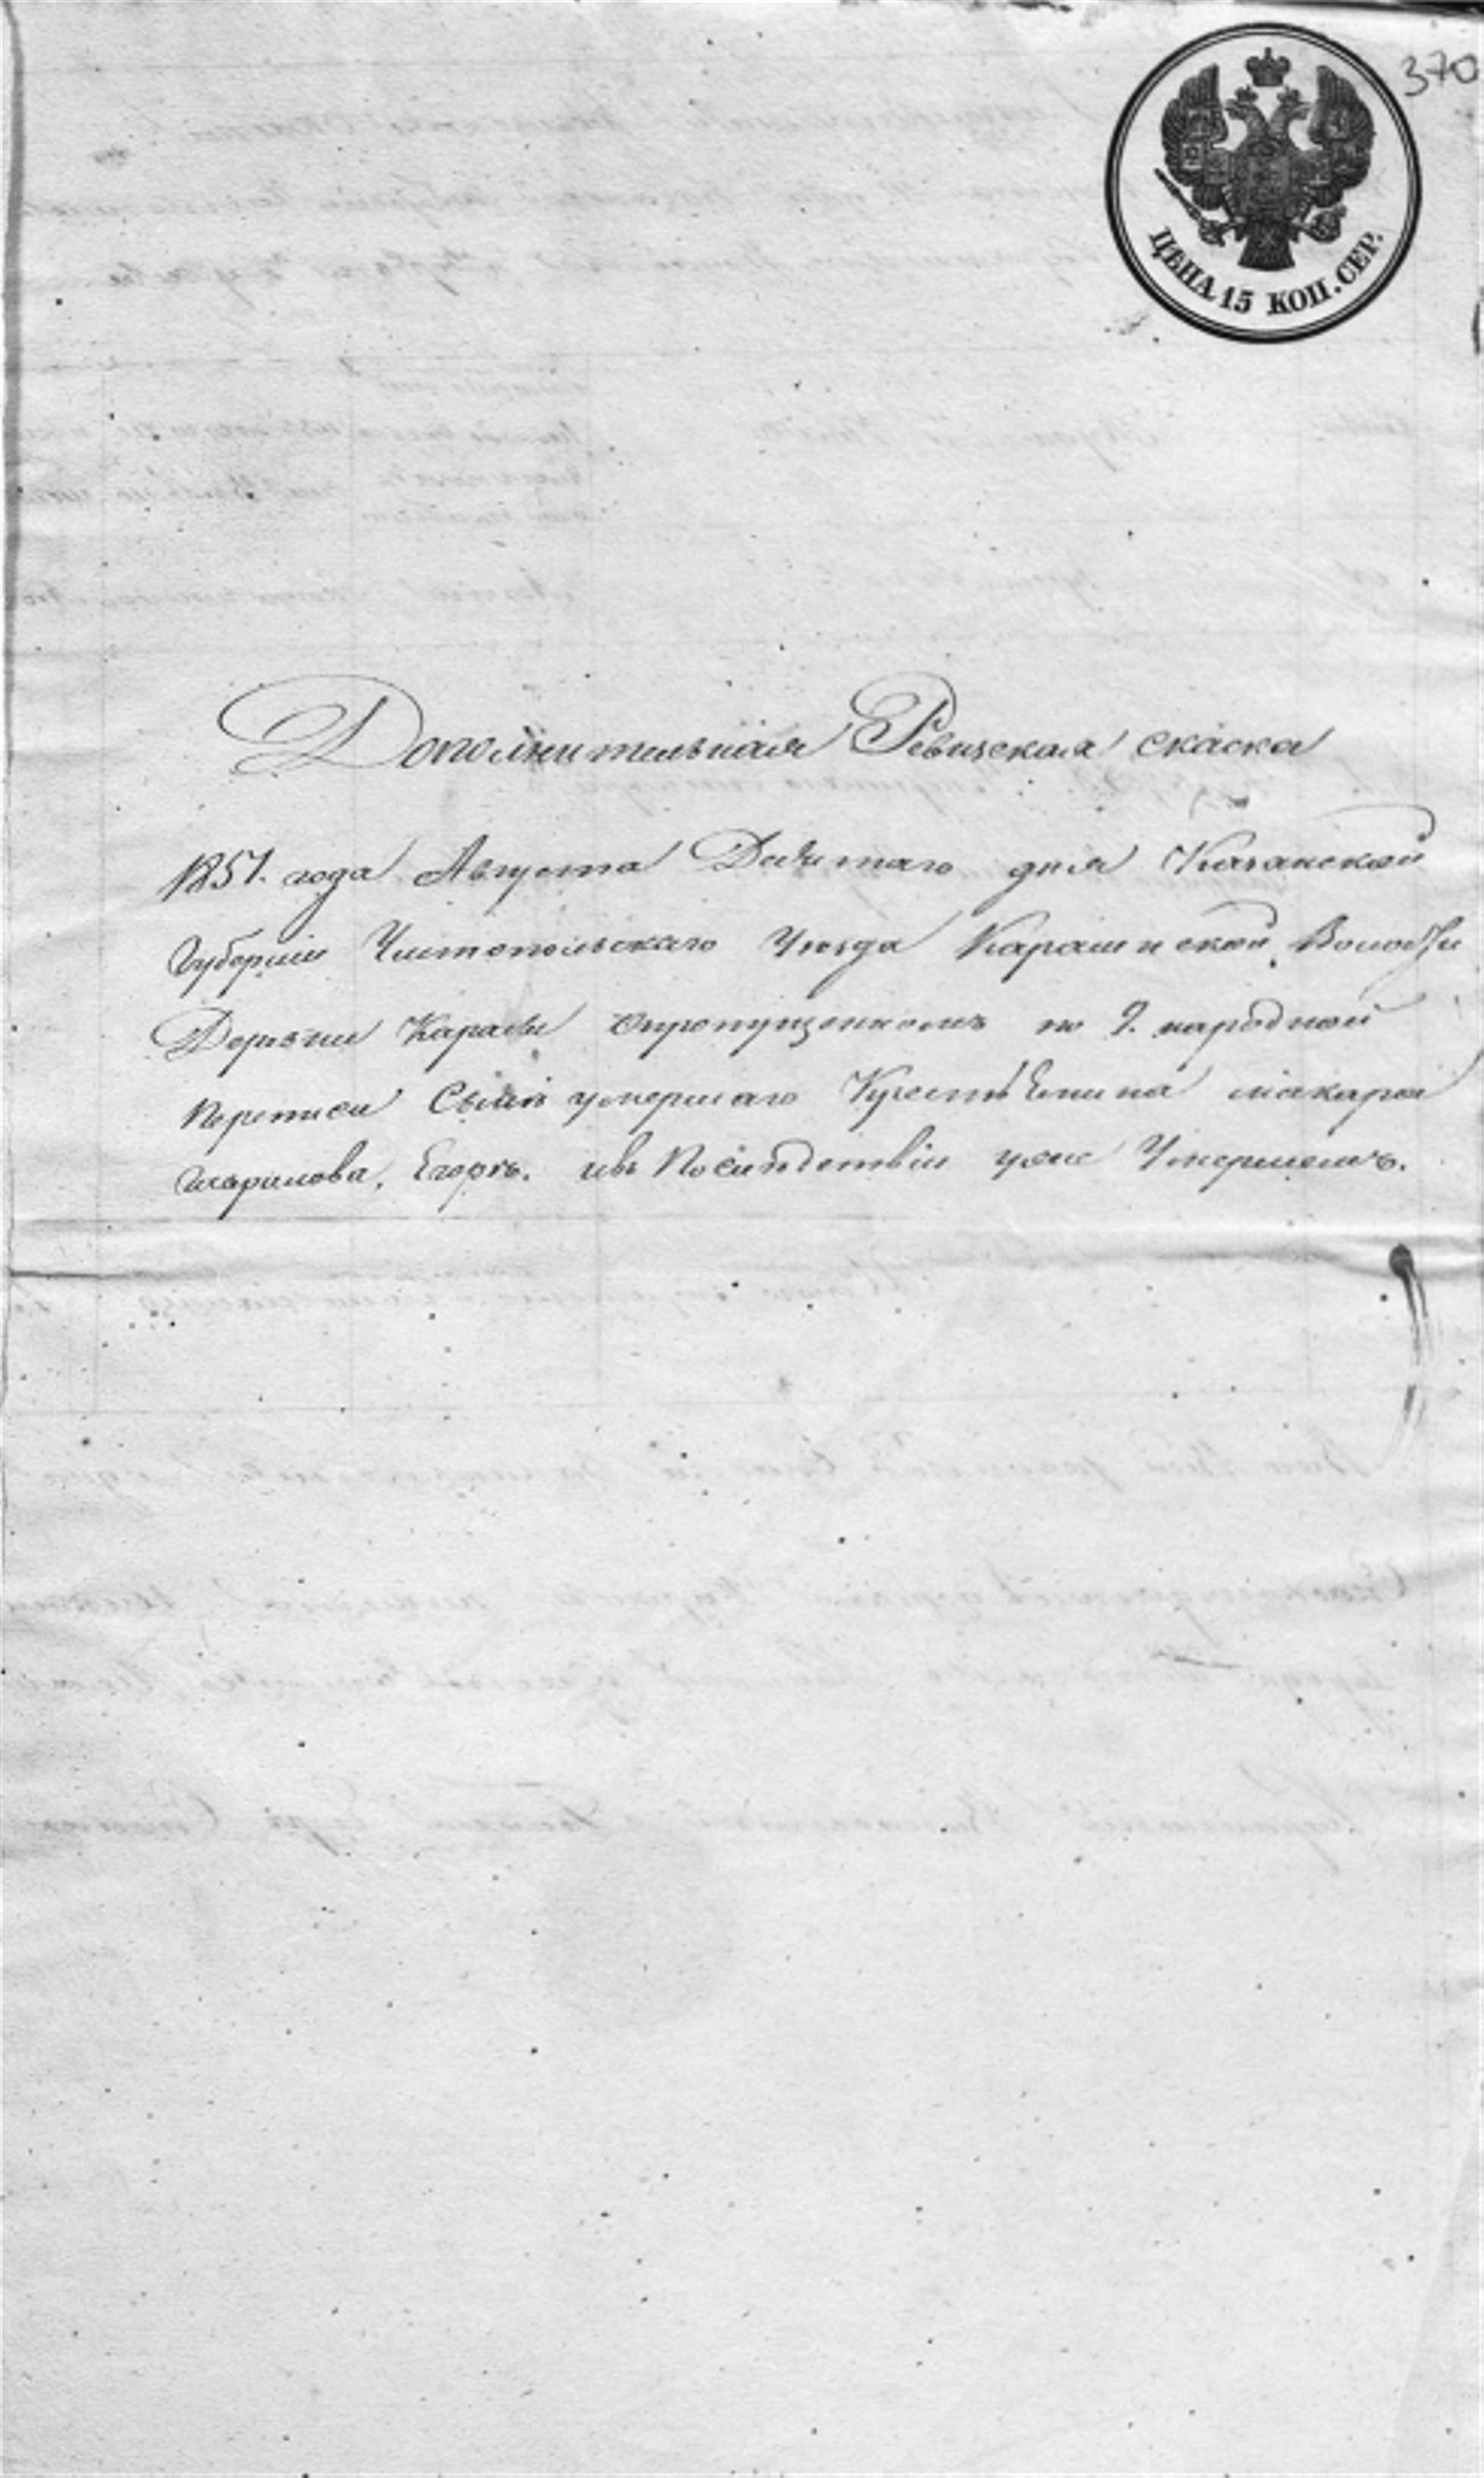 370
ЦѢНА 15 КОП. СЕР.
Дополнительная Ревизская скаска
1851. года Августа Девятаго дня Казанской
Губернии Чистопольскаго Уезда Волости
Деревни опропущенномъ по 9. народной
переписи Сынѣ умершаго макара
Гаврилова, Егорѣ. ивъ Послѣдствіи уже Умершемъ.